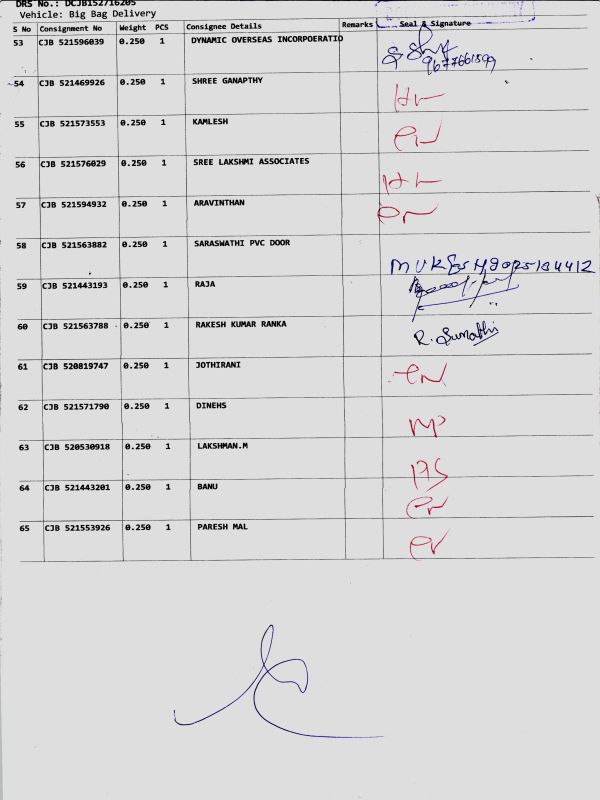 DRS No.: DCJB152716205
Vehicle: Big Bag Delivery
S No Consignment No Weight PCS Consignee Details Remarks Seal & Signature
53 CJB 521596039 0.250 1 DYNAMIC OVERSEAS INCORPOERATIO
54 CJB 521469926 0.250 1 SHREE GANAPTHY
55 CJB 521573553 0.250 1 KAMLESH
56 CJB 521576029 0.250 1 SREE LAKSHMI ASSOCIATES
57 CJB 521594932 0.250 1 ARAVINTHAN
58 CJB 521563882 0.250 1 SARASWATHI PVC DOOR
59 CJB 521443193 0.250 1 RAJA
60 CJB 521563788 0.250 1 RAKESH KUMAR RANKA R. Sumathi
61 CJB 520819747 0.250 1 JOTHIRANI
62 CJB 521571790 0.250 1 DINEHS
63 CJB 520530918 0.250 1 LAKSHMAN.M
64 CJB 521443201 0.250 1 BANU
65 CJB 521553926 0.250 1 PARESH MAL